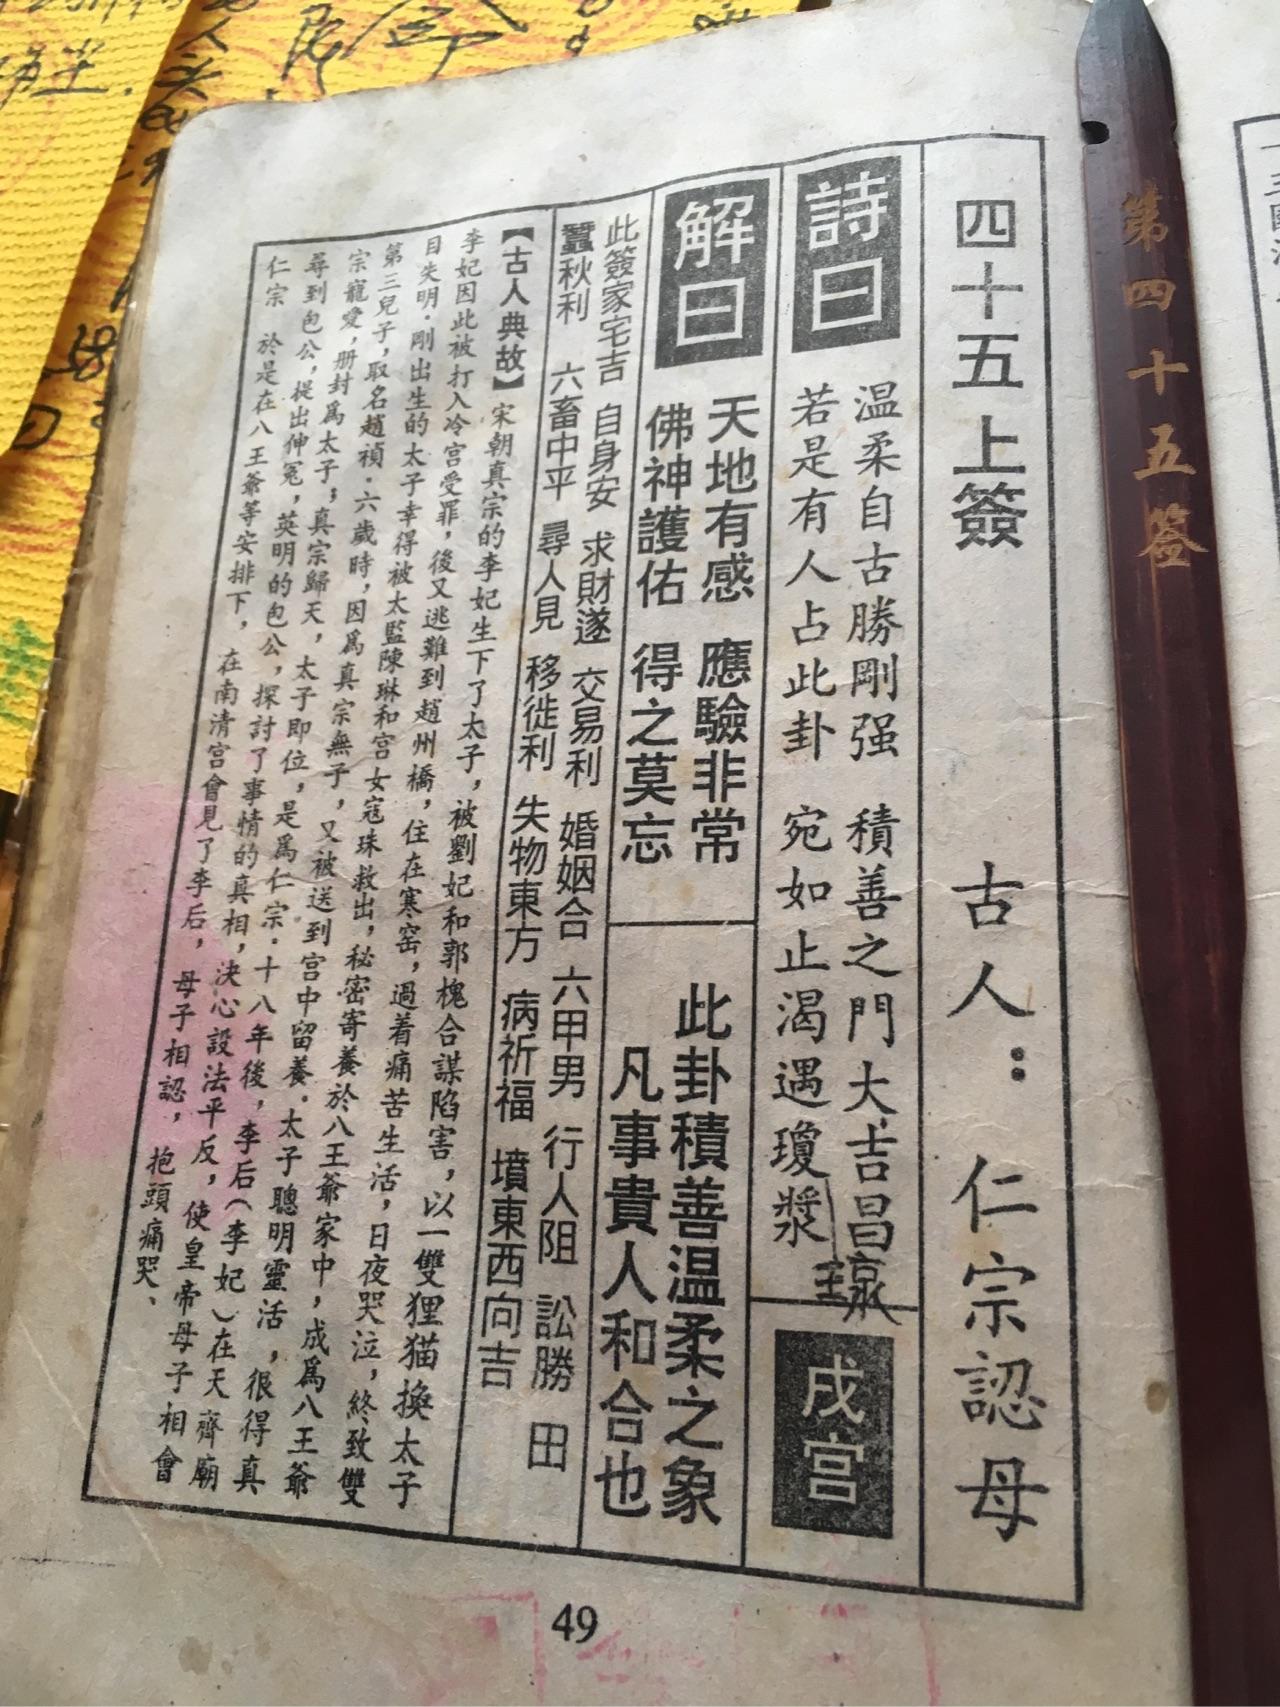 第四十五签
四十五上簽　古人：仁宗認母
詩曰
温柔自古勝剛强　積善之門大吉昌
若是有人占此卦　宛如止渴遇瓊漿
戌宫
解曰
天地有感　應驗非常
佛神護佑　得之莫忘
此卦積善温柔之象
凡事貴人和合也
此簽家宅吉　自身安　求財遂　交易利　婚姻合　六甲男　行人阻　訟勝　田
蠶秋利　六畜中平　尋人見　移徙利　失物東方　病祈福　墳東西向吉
【古人典故】宋朝真宗的李妃生下了太子，被劉妃和郭槐合謀陷害，以一雙狸猫換太子
李妃因此被打入冷宫受罪，後又逃難到趙州橋，住在寒窑，過着痛苦生活，日夜哭泣，終致雙
目失明．剛出生的太子幸得被太監陳琳和宫女寇珠救出，秘密寄養於八王爺家中，成爲八王爺
第三兒子，取名趙禎．六歲時，因爲真宗無子，又被送到宫中留養．太子聰明靈活，很得真
宗寵愛，册封爲太子；真宗歸天，太子即位，是爲仁宗．十八年後，李后（李妃）在天齊廟
尋到包公，提出伸冤，英明的包公，探討了事情的真相，決心設法平反，使皇帝母子相會
仁宗　於是在八王爺等安排下，在南清宫會見了李后，母子相認，抱頭痛哭、
49